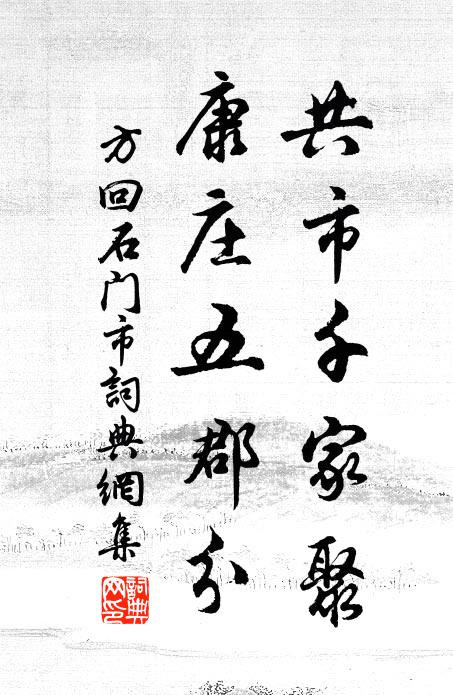 共市千家聚
康庄五郡分
方回石门市詞典網集
詞典网印